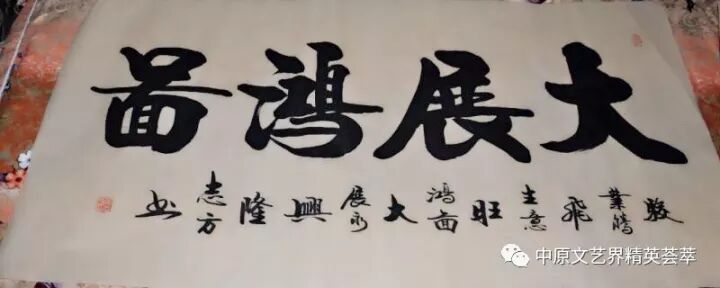 大展鴻啚
駿業騰飛生意旺鴻啚大展永興隆
志方书
中原文艺界精英荟萃